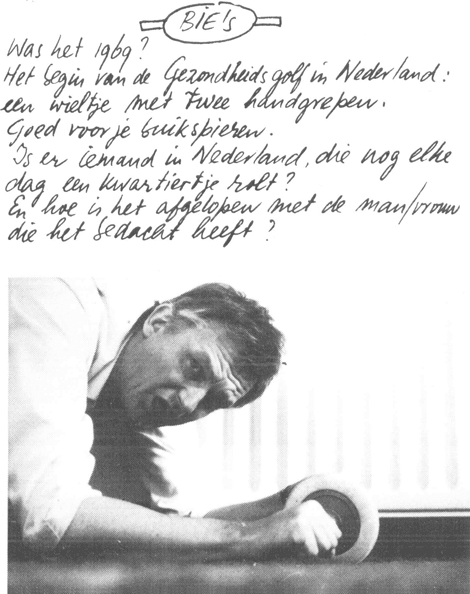 BIE's
Was het 1969?
Het begin van de Gezondheidsgolf in Nederland:
een wieltje met twee handgrepen.
Goed voor je buikspieren.
Is er iemand in Nederland, die nog elke
dag een kwartiertje rolt?
En hoe is het afgelopen met de man/vrouw
die het bedacht heeft?